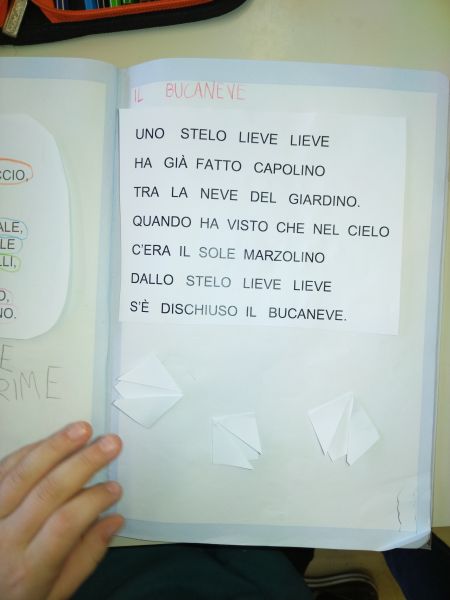 IL BUCANEVE
UNO STELO LIEVE LIEVE
HA GIÀ FATTO CAPOLINO
TRA LA NEVE DEL GIARDINO.
QUANDO HA VISTO CHE NEL CIELO
C'ERA IL SOLE MARZOLINO
DALLO STELO LIEVE LIEVE
S'È DISCHIUSO IL BUCANEVE.